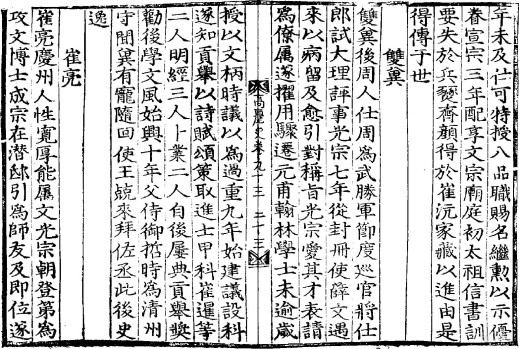 年未及仕可特授八品職賜名繼勲以示優
眷宣宗三年配享文宗廟庭初太祖信書訓
要失於兵燹齊顔得於崔沆家藏以進由是
得傳于世
雙冀
雙冀後周人仕周爲武勝軍節度巡官將仕
郎試大理評事光宗七年從封冊使薛文遇
來以病留及愈引對稱旨光宗愛其才表請
爲僚屬遂擢用驟遷元甫翰林學士未逾歲
高麗史卷九十三 二十三
授以文柄時議以爲過重九年始建議設科
遂知貢擧以詩賦頌策取進士甲科崔暹等
二人明經三人卜業二人自後屢典貢擧獎
勸後學文風始興十年父侍御哲時爲清州
守聞冀有寵隨回使王兢來拜佐丞此後史
逸
崔亮
崔亮慶州人性寬厚能屬文光宗朝登第爲
攻文博士成宗在潜邸引爲師友及即位遂